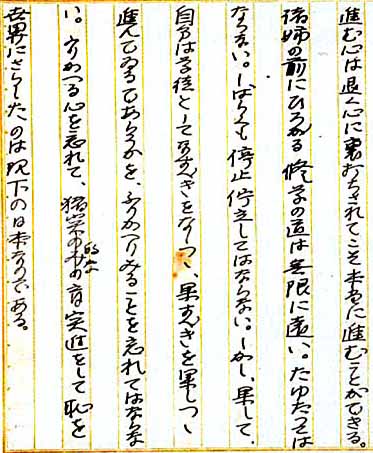 進む心は退く心に裏うちされてこそ本当に進むことができる。
諸姉の前にひろがる修学の道は無限に遠い。たゆたっては
ならない。しばらくも停止佇立してはならない。しかし、果して、
自分は学徒としてなすべきをなしつつ、果すべきを果しつつ
進んでゐるであらうかを、ふりかへりみることを忘れてはならな
い。ふりかへる心を忘れて、猪突的な盲突進をして恥を
世界にさらしたのは現下の日本なのである。